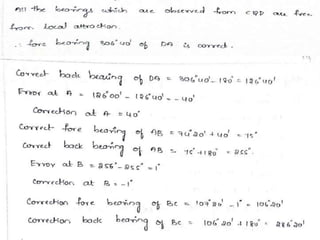 All the bearings which are observed from C&D are free
from local attraction.
∴ fore bearing 306°40' of DA is correct.
Correct back bearing of DA = 306°40' - 180° = 126°40'
Error at A = 126°00' - 126°40' = -40'
Correction at A = 40'
Correct fore bearing of AB = 74°20' + 40' = 75°
Correct back bearing of AB = 75° + 180° = 255°
Error at B = 256° - 255° = 1°
Correction at B = -1°
Correction fore bearing of BC = 107°20' - 1° = 106°20'
Correction back bearing of BC = 106°20' + 180° = 286°20'